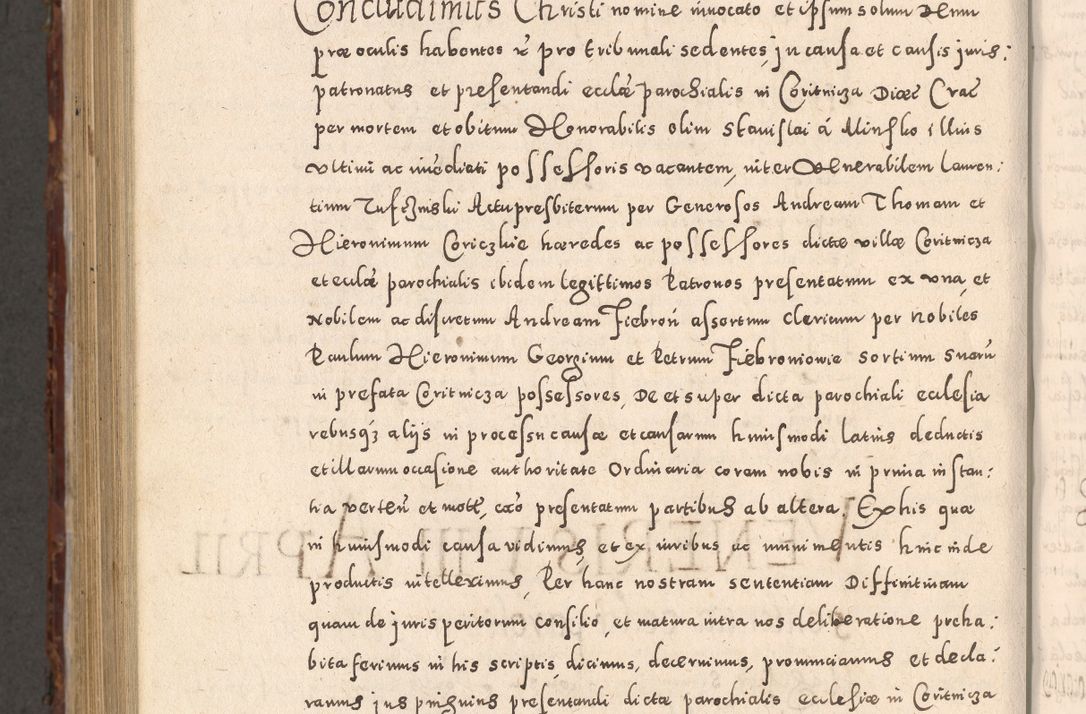 Concludimus Christi nomine invocato et ipsum solum Deum
præ oculis habentes et pro tribunali sedentes, in causa et causis juris:
patronatus et presentandi ecclæ parochialis in Coritnicza Diœc Crac
per mortem et obitum Honorabilis olim Stanislai á Minsko illius
ultimi ac imediati possessoris vacantem, inter Venerabilem Lauren:
tium Tusczinski Actu presbiterum per Generosos Andream Thomam et
Hieronimum Coriczkie hæredes ac possessores dictæ villæ Coritnicza
et ecclæ parochialis ibidem legittimos Patronos presentatum ex una, et
Nobilem ac discretum Andream Fiebroń assertum clericum per nobiles
Paulum Hieronimum Georgium et Petrum Fiebroniowie sortium suarū
in prefata Coritnicza possessores, De et super dicta parochiali ecclesia
rebusq3 alijs in processu causæ et causarum huiusmodi latius deductis
et illarum occasione authoritate Ordinaria coram nobis in prima instan:
tia verteñ et mott, exõ presentatum partibus ab altera. Ex his quæ
in huiusmodi causa vidimus, et ex iuribus ac munimentis hinc inde
productis intelleximus, Per hanc nostram sententiam Diffinitivam
quam de juris peritorum consilio, et matura intra nos deliberatione preha:
bita ferimus in his scriptis, dicimus, decernimus, pronunciamus et decla:
ramus jus presentandi dictæ parochialis ecclesiæ in Coritnicza